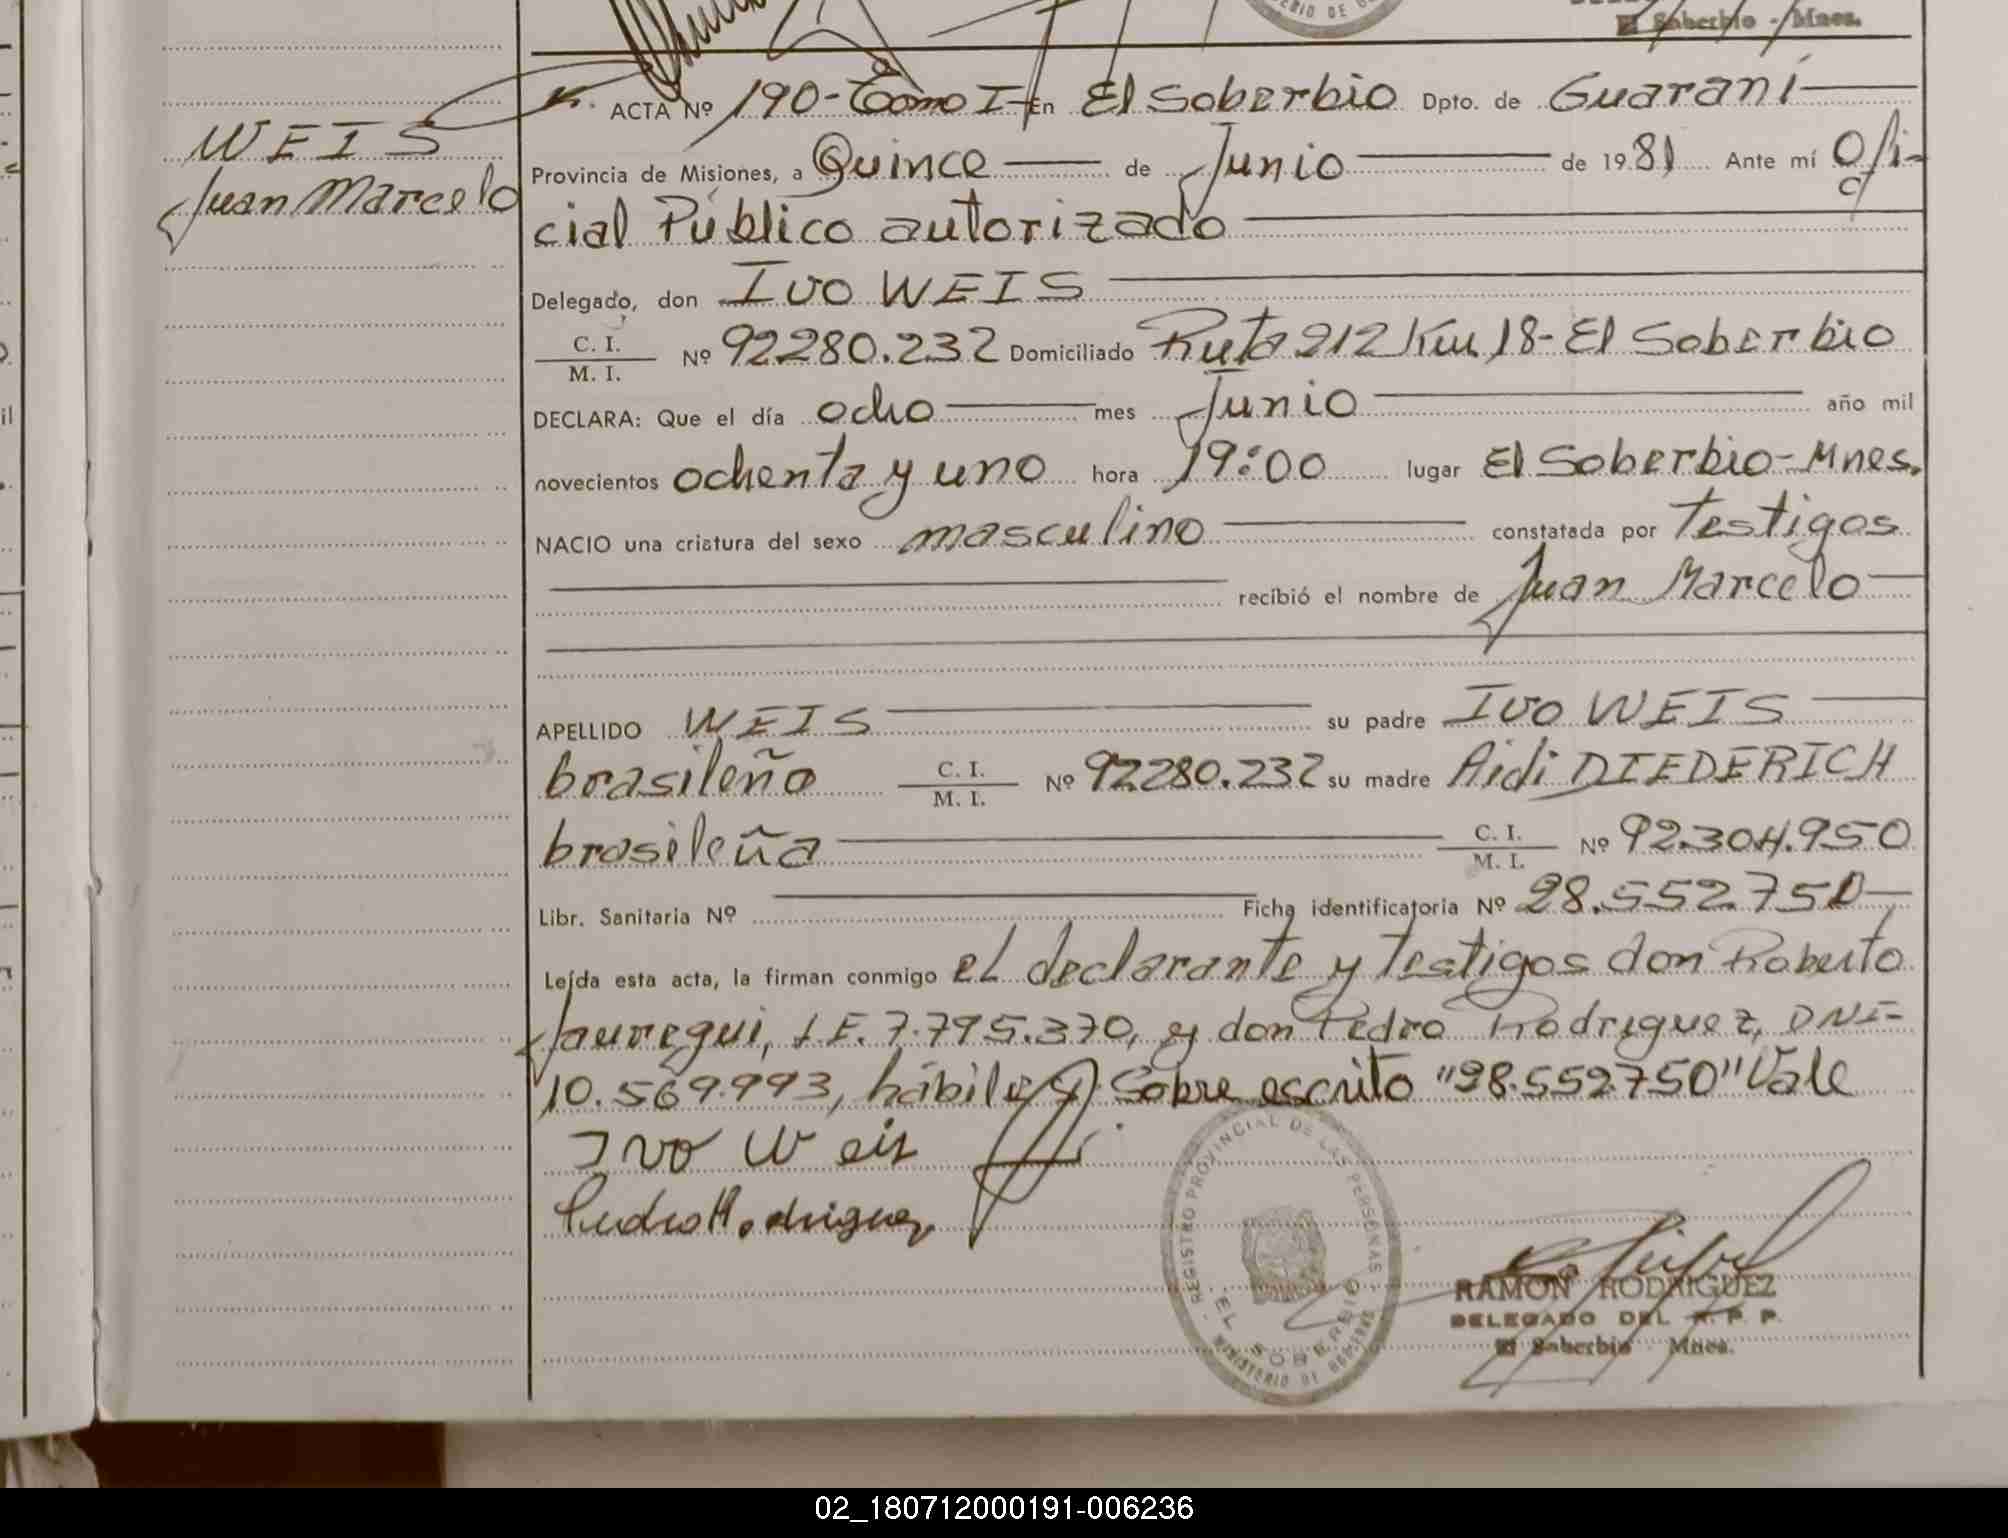 El Soberbio - Mnes.
ACTA Nº 190- Tomo I- En El Soberbio Dpto. de Guaraní
WEIS
Juan Marcelo
Provincia de Misiones, a Quince de Junio de 1981 Ante mí Ofi-
cial Público autorizado
Delegado, don Ivo WEIS
C. I.
M. I. Nº 92280.232 Domiciliado Ruta 212 Km 18- El Soberbio
DECLARA: Que el día ocho mes Junio año mil
novecientos ochenta y uno hora 19:00 lugar El Soberbio-Mnes.
NACIO una criatura del sexo masculino constatada por Testigos
recibió el nombre de Juan Marcelo
APELLIDO WEIS su padre Ivo WEIS
brasileño C. I.
M. I. Nº 92280.232 su madre Aidi DIEDERICH
brasileña C. I.
M. I. Nº 92.304.950
Libr. Sanitaria Nº Ficha identificatoria Nº 28.552.750
Leída esta acta, la firman conmigo el declarante y testigos don Roberto
Jauregui, L.E. 7.795.370, y don Pedro Rodriguez, DNI-
10.569.993, hábiles. Sobre escrito "28.552.750" Vale
Ivo Weis
Pedro Rodriguez
REGISTRO PROVINCIAL DE LAS PERSONAS
EL SOBERBIO
MINISTERIO DE GOBIERNO
RAMON RODRIGUEZ
DELEGADO DEL R. P. P.
El Soberbio Mnes.
02_180712000191-006236